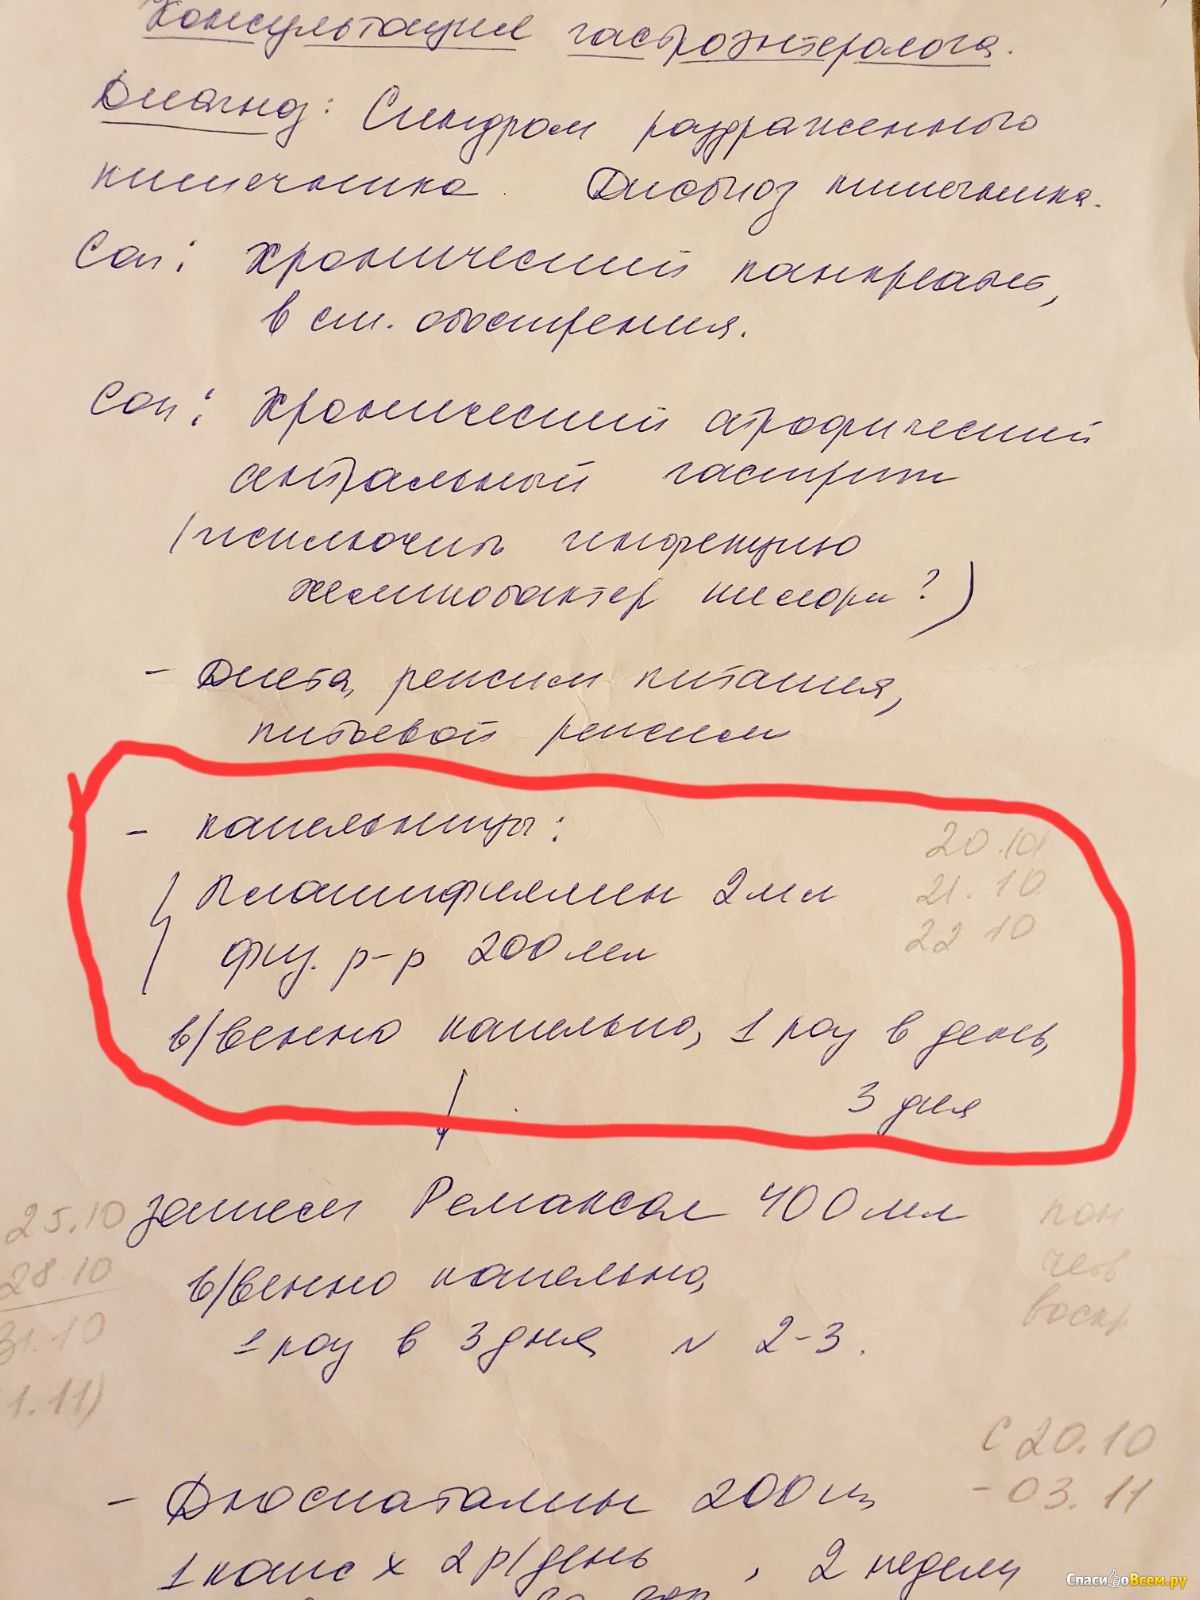 Консультация гастроэнтеролога.
Диагноз: Синдром раздраженного
кишечника. Дисбиоз кишечника.
Соп: Хронический панкреатит,
в ст. обострения.
Соп: Хронический атрофический
антральный гастрит
(исключить инфекцию
хеликобактер пилори?)
- Диета, режим питания,
питьевой режим
- капельницы: 20.10
Платифиллин 2мл 21.10
физ. р-р 200мл 22 10
в/венно капельно, 1 раз в день,
3 дня
25.10 затем Ремаксол 400мл пон
28 10 в/венно капельно, чет
31.10 1 раз в 3 дня N 2-3. воскр
1.11)
с 20.10
- Дюспаталин 200мг - 03.11
1 капс х 2р/день, 2 недели
СпасибоВсем.ру